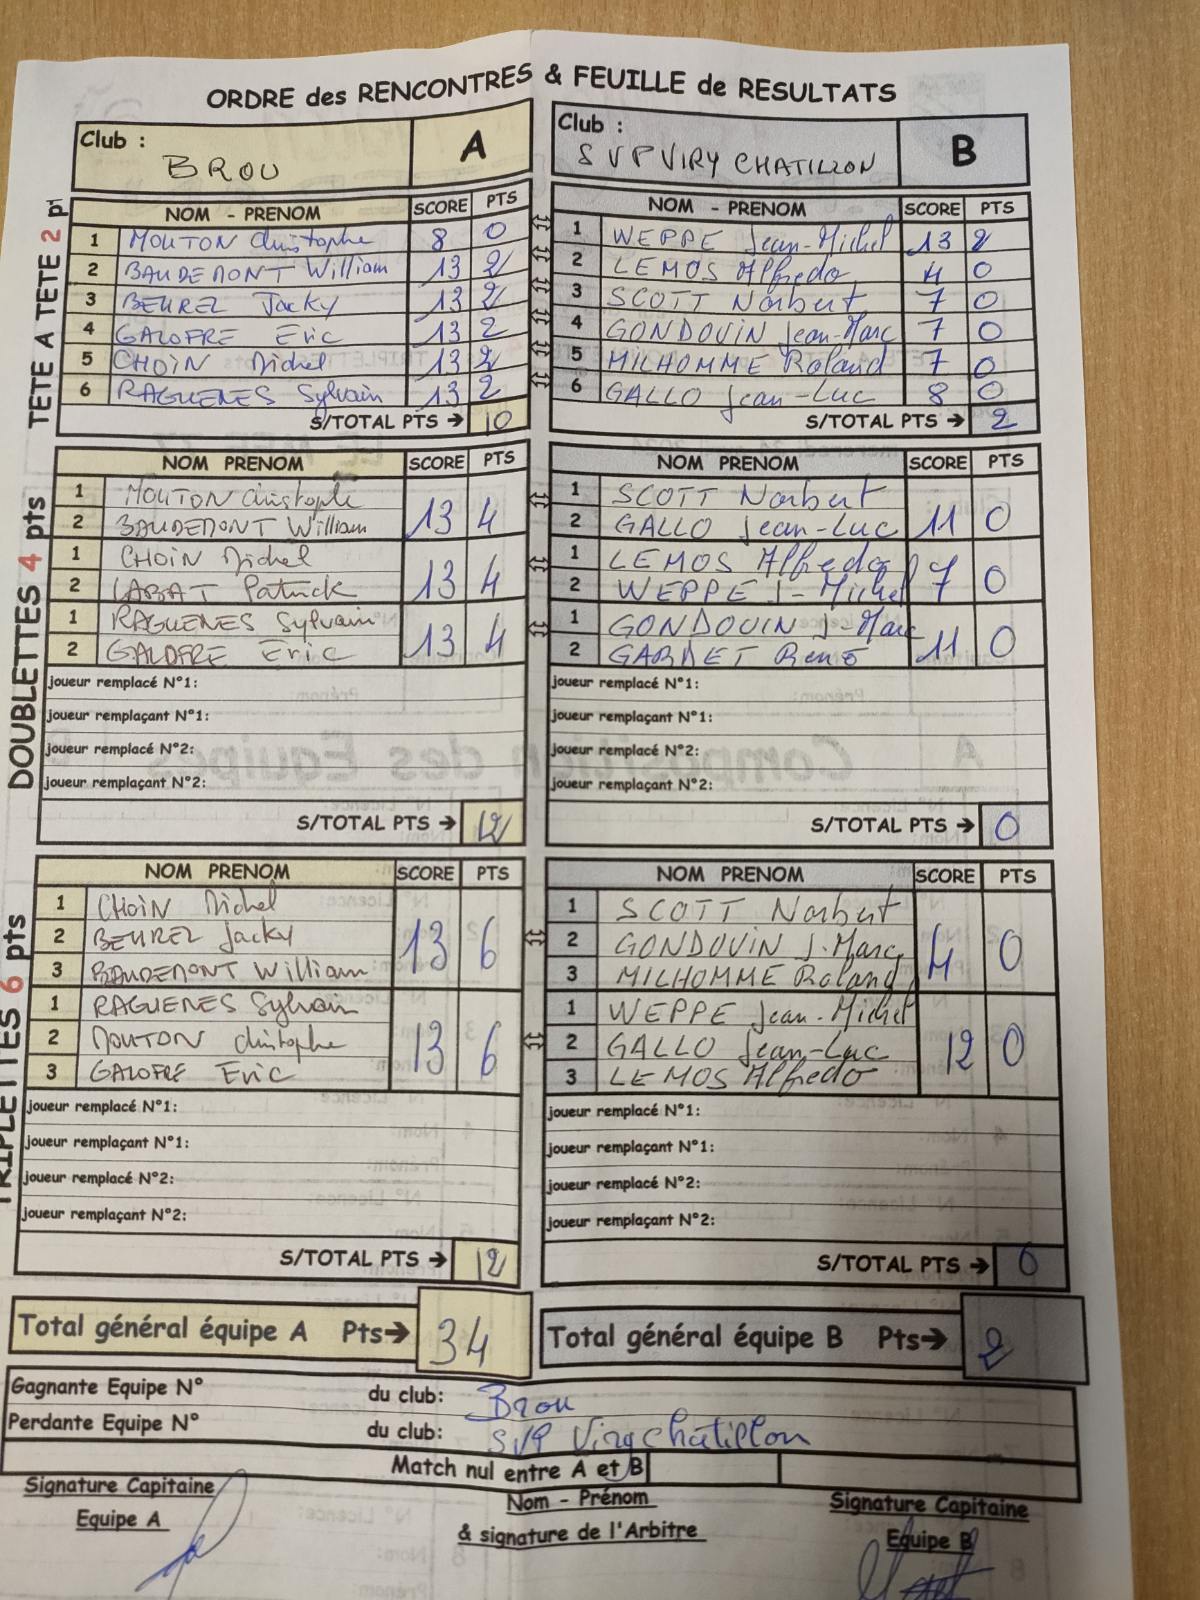 ORDRE des RENCONTRES & FEUILLE de RESULTATS
Club : BROU A
Club : SVP VIRY CHATILLON B
TETE A TETE 2 pt
NOM - PRENOM SCORE PTS NOM - PRENOM SCORE PTS
1 MOUTON Christophe 8 0 1 WEPPE Jean-Michel 13 2
2 BAUDEMONT William 13 2 2 LEMOS Alfredo 4 0
3 BEUREL Jacky 13 2 3 SCOTT Norbert 7 0
4 GALOFRE Eric 13 2 4 GONDOUIN Jean-Marc 7 0
5 CHOIN Michel 13 2 5 MILHOMME Roland 7 0
6 RAGUENES Sylvain 13 2 6 GALLO Jean-Luc 8 0
S/TOTAL PTS → 10 S/TOTAL PTS → 2
DOUBLETTES 4 pts
NOM PRENOM SCORE PTS NOM PRENOM SCORE PTS
1 MOUTON Christophe 1 SCOTT Norbert
2 BAUDEMONT William 13 4 2 GALLO Jean-Luc 11 0
1 CHOIN Michel 1 LEMOS Alfredo
2 LABAT Patrick 13 4 2 WEPPE J-Michel 7 0
1 RAGUENES Sylvain 1 GONDOUIN J-Marc
2 GALOFRE Eric 13 4 2 GARDET René 11 0
joueur remplacé N°1: joueur remplacé N°1:
joueur remplaçant N°1: joueur remplaçant N°1:
joueur remplacé N°2: joueur remplacé N°2:
joueur remplaçant N°2: joueur remplaçant N°2:
S/TOTAL PTS → 12 S/TOTAL PTS → 0
TRIPLETTES 6 pts
NOM PRENOM SCORE PTS NOM PRENOM SCORE PTS
1 CHOIN Michel 1 SCOTT Norbert
2 BEUREL Jacky 13 6 2 GONDOUIN J-Marc 4 0
3 BAUDEMONT William 3 MILHOMME Roland
1 RAGUENES Sylvain 1 WEPPE Jean-Michel
2 MOUTON Christophe 13 6 2 GALLO Jean-Luc 12 0
3 GALOFRE Eric 3 LEMOS Alfredo
joueur remplacé N°1: joueur remplacé N°1:
joueur remplaçant N°1: joueur remplaçant N°1:
joueur remplacé N°2: joueur remplacé N°2:
joueur remplaçant N°2: joueur remplaçant N°2:
S/TOTAL PTS → 12 S/TOTAL PTS → 0
Total général équipe A Pts→ 34 Total général équipe B Pts→ 2
Gagnante Equipe N° du club: Brou
Perdante Equipe N° du club: SVP Viry chatillon
Match nul entre A et B
Signature Capitaine Nom - Prénom Signature Capitaine
Equipe A & signature de l'Arbitre Equipe B